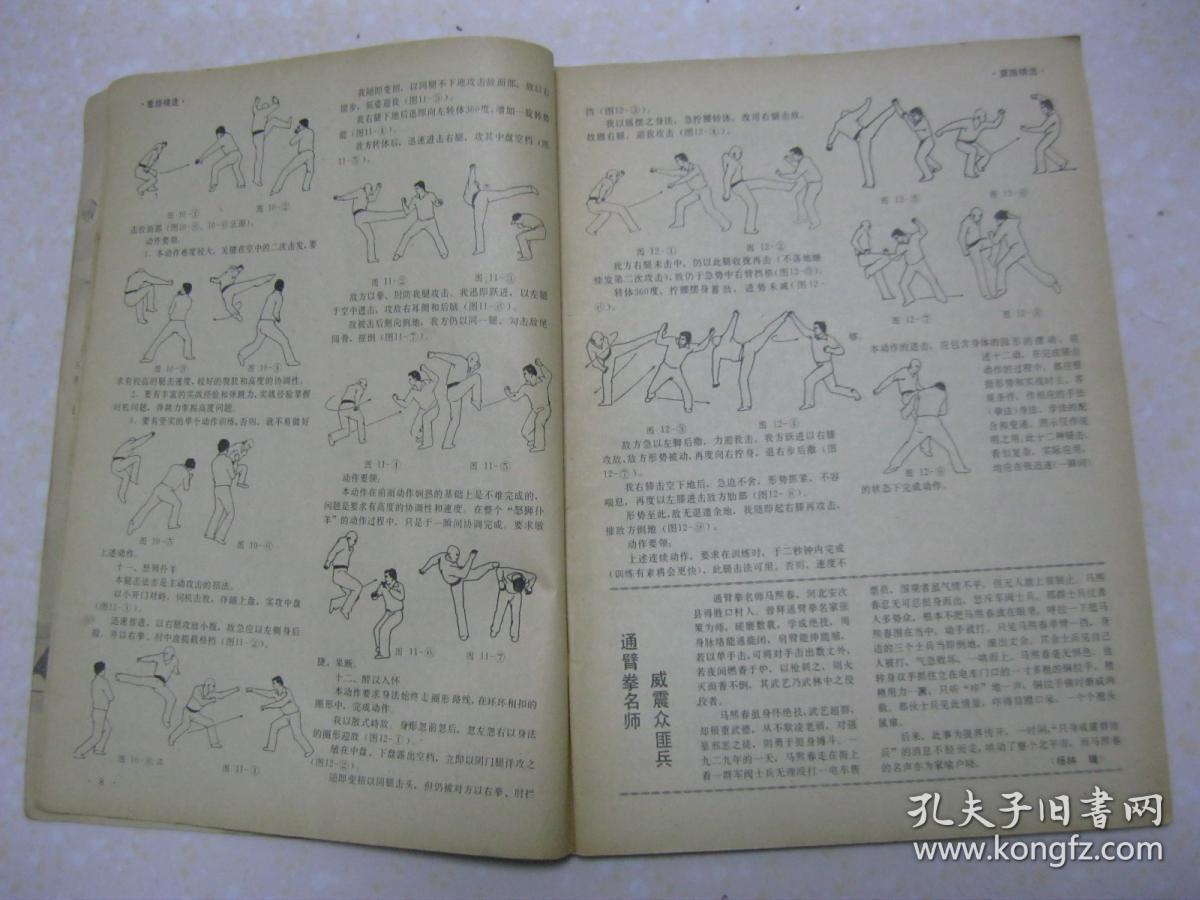 ·套路精选·
图 10-①
图 10-②
击敌面部(图10-⑤、10-⑥正面)。
动作要领:
1、本动作难度较大,关键在空中的二次击发,要
图 10-③
图 10-④
求有较高的腿击速度,较好的腹肌和高度的协调性。
2、要有丰富的实战经验和弹跳力,实战经验掌握
时机问题,弹跳力掌握高度问题。
3、要有坚实的单个动作训练,否则,就不易做好
图 10-⑤
图 10-⑥
上述动作。
十一、怒狮扑羊
本腿击法亦是主动攻击的招法。
以小开门对峙,伺机击敌,佯踹上盘,实攻中盘
(图11-①)。
迅速推进,以右腿攻敌小腹,敌急应以左侧身后
撤,并以右拳、肘中途拦截格挡(图11-②)。
图 11-①
·8·
我随即变招,以同腿不下地攻击敌面部,
摆步,低姿避我(图11-③)。
我右腿下地后迅即向左转体360度,增加一旋转势
能(图11-④)。
我方转体后,迅速进击右腿,攻其中盘空档(图
11-⑤)。
图 11-②
图 11-③
敌方以拳、肘防我腿攻击,我迅即跃进,以左腿
于空中进击,攻敌右耳侧和后脑(图11-⑥)。
敌被击后侧向倒地,我方仍以同一腿,勾击敌尾
闾骨,摧倒(图11-⑦)。
图 11-④
图 11-⑤
动作要领:
本动作在前面动作娴熟的基础上是不难完成的,
问题是要求有高度的协调性和速度。在整个“怒狮扑
羊”的动作过程中,只是于一瞬间协调完成。要求敏
图 11-⑥
图 11-⑦
捷、果断。
十二、醉汉入怀
本动作要求身法始终走圈形路线,在环环相扣的
圈形中,完成动作。
我以散式峙敌,身形忽前忽后,忽左忽右以身法
的圈形迎敌(图12-①)。
敌在中盘、下盘露出空档,立即以阴门腿佯攻之
(图12-②)。
随即变招以同腿击头,但仍被对方以右拳、肘拦
·套路精选·
挡(图12-③)。
我以摇摆之身法,急拧腰转体,改用右腿击敌,
敌撤右腿,避我攻击(图12-④)。
图 12-①
图 12-②
我方右腿未击中,仍以此腿收拢再击(不落地继
续发第二次攻击),敌仍于急势中右臂挡格(图12-⑤)。
转体360度,拧腰摆身蓄劲,进势未减(图12-
⑥)。
图 12-③
图 12-④
敌方急以左脚后撤,力避我击,我方跃进以右膝
攻敌,敌方形势被动,再度向右拧身,退右步后撤(图
12-⑦)。
我右膝击空下地后,急迫不舍,形势抓紧,不容
喘息,再度以左膝进击敌方肋部(图12-⑧)。
形势至此,敌无退遁余地,我随即起右膝再攻击,
摧敌方倒地(图12-⑩)。
动作要领:
上述连续动作,要求在训练时,于二秒钟内完成
(训练有素将会更快),此腿击法可用。否则,速度不
图 12-⑤
图 12-⑥
图 12-⑦
图 12-⑧
够。
本动作的进击,应包含身体的圆形的摆动,前
述十二动,在完成腿击
动作的过程中,都应根
据形势和实战对主、客
观条件,作相应的手法
(拳法)身法、步法的配
合和变通,图示仅作说
明之用,此十二种腿击,
看似复杂,实际应用,
均应在极迅速(一瞬间)
图 12-⑨
的状态下完成动作。
通臂拳名师
威震众匪兵
通臂拳名师马熙春,河北安次
县得胜口村人。曾拜通臂拳名家张
策为师,磋磨数载,学成绝技,周
身脉络能通能闭,肩臂能伸能缩,
若以单手击,可将对手击出数丈外,
若夜间燃香于炉,以枪刺之,则火
灭而香不倒,其武艺乃武林中之佼
佼者。
马熙春虽身怀绝技,武艺超群,
却极重武德,从不欺凌老弱,对强
暴邪恶之徒,则勇于挺身搏斗。一
九二九年的一天,马熙春走在街上
看一群军阀士兵无理殴打一电车售
票员,围观者虽气愤不平,但无人敢上前制止,马熙
春忍无可忍挺身而出,怒斥军阀士兵。那群士兵仗着
人多势众,根本不把马熙春放在眼里,呼拉一下把马
熙春围在当中,动手就打。只见马熙春单臂一挡,身
边的三个士兵当即倒地,滚出丈余。其余士兵见自己
人被打,气急败坏,一哄而上。马熙春毫无惧色,他
转身双手抓住立在电车门口的一寸多粗的铜拉手,稍
稍用力一撅,只听“咔”地一声,铜拉手顿时断成两
截。那伙士兵见此情景,吓得目瞪口呆,一个个抱头
鼠窜。
后来,此事为报界传开,一时间,“只身威震群匪
兵”的消息不胫而走,哄动了整个北平市,而马熙春
的名声亦为家喻户晓。
孔夫子旧书网
www.kongfz.com